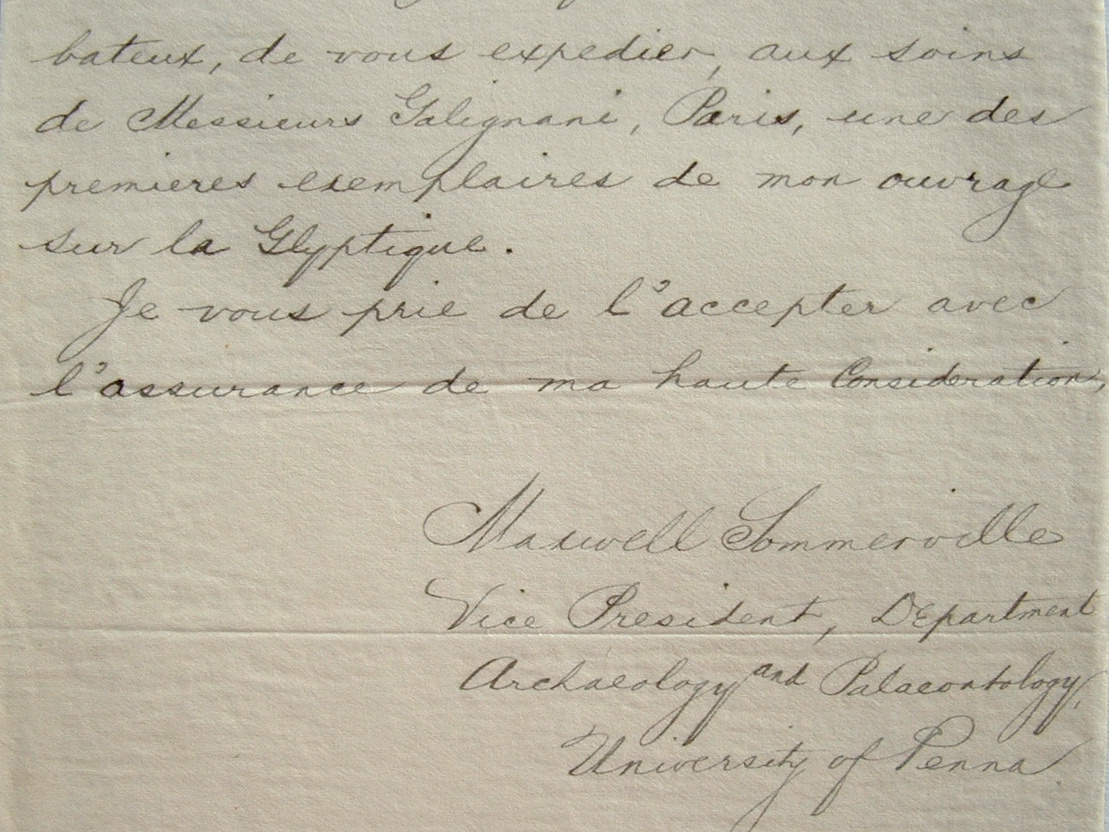 bateux, de vous expedier, aux soins
de Messieurs Galignani, Paris, une des
premieres exemplaires de mon ouvrage
sur la Glyptique.
Je vous prie de l'accepter avec
l'assurance de ma haute Consideration,
Maxwell Sommerville
Vice President, Department
Archaeology and Palaeontology,
University of Penna.